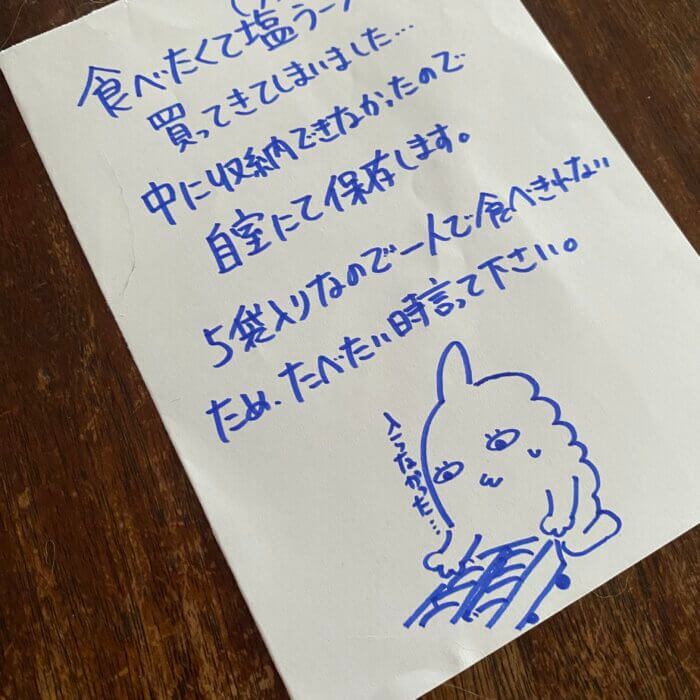 食べたくて塩ラー
買ってきてしまいました…
中に収納できなかったので
自室にて保存します。
5袋入りなので一人で食べきれない
ため、たべたい時言って下さい。
入らなかった…